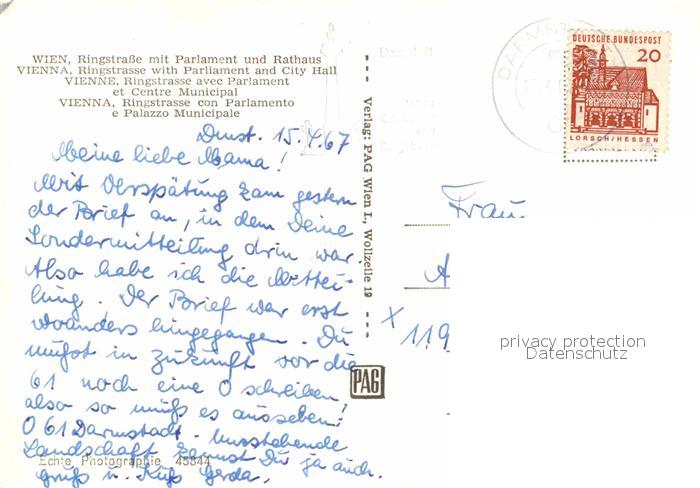 WIEN, Ringstraße mit Parlament und Rathaus
VIENNA, Ringstrasse with Parliament and City Hall
VIENNE, Ringstrasse avec Parlament
et Centre Municipal
VIENNA, Ringstrasse con Parlamento
e Palazzo Municipale
Dmst. 15.4.67
Meine liebe Mama!
Mit Verspätung kam gestern
der Brief an, in dem Deine
Sondermitteilung drin war.
Also habe ich die Mittei-
lung. Der Brief war erst
woanders hingegangen. Du
mußt in Zukunft vor die
61 noch eine O schreiben!
also so muß es aussehen:
O 61 Darmstadt. Umstehende
Landschaft kennst Du ja auch.
Gruß u. Kuß Gerda.
Echte Photographie 45844
Verlag: PAG Wien I., Wollzeile 19
PAG
DARMST
DEUTSCHE BUNDESPOST
20
LORSCH/HESSEN
Frau
A
X 119
privacy protection
Datenschutz